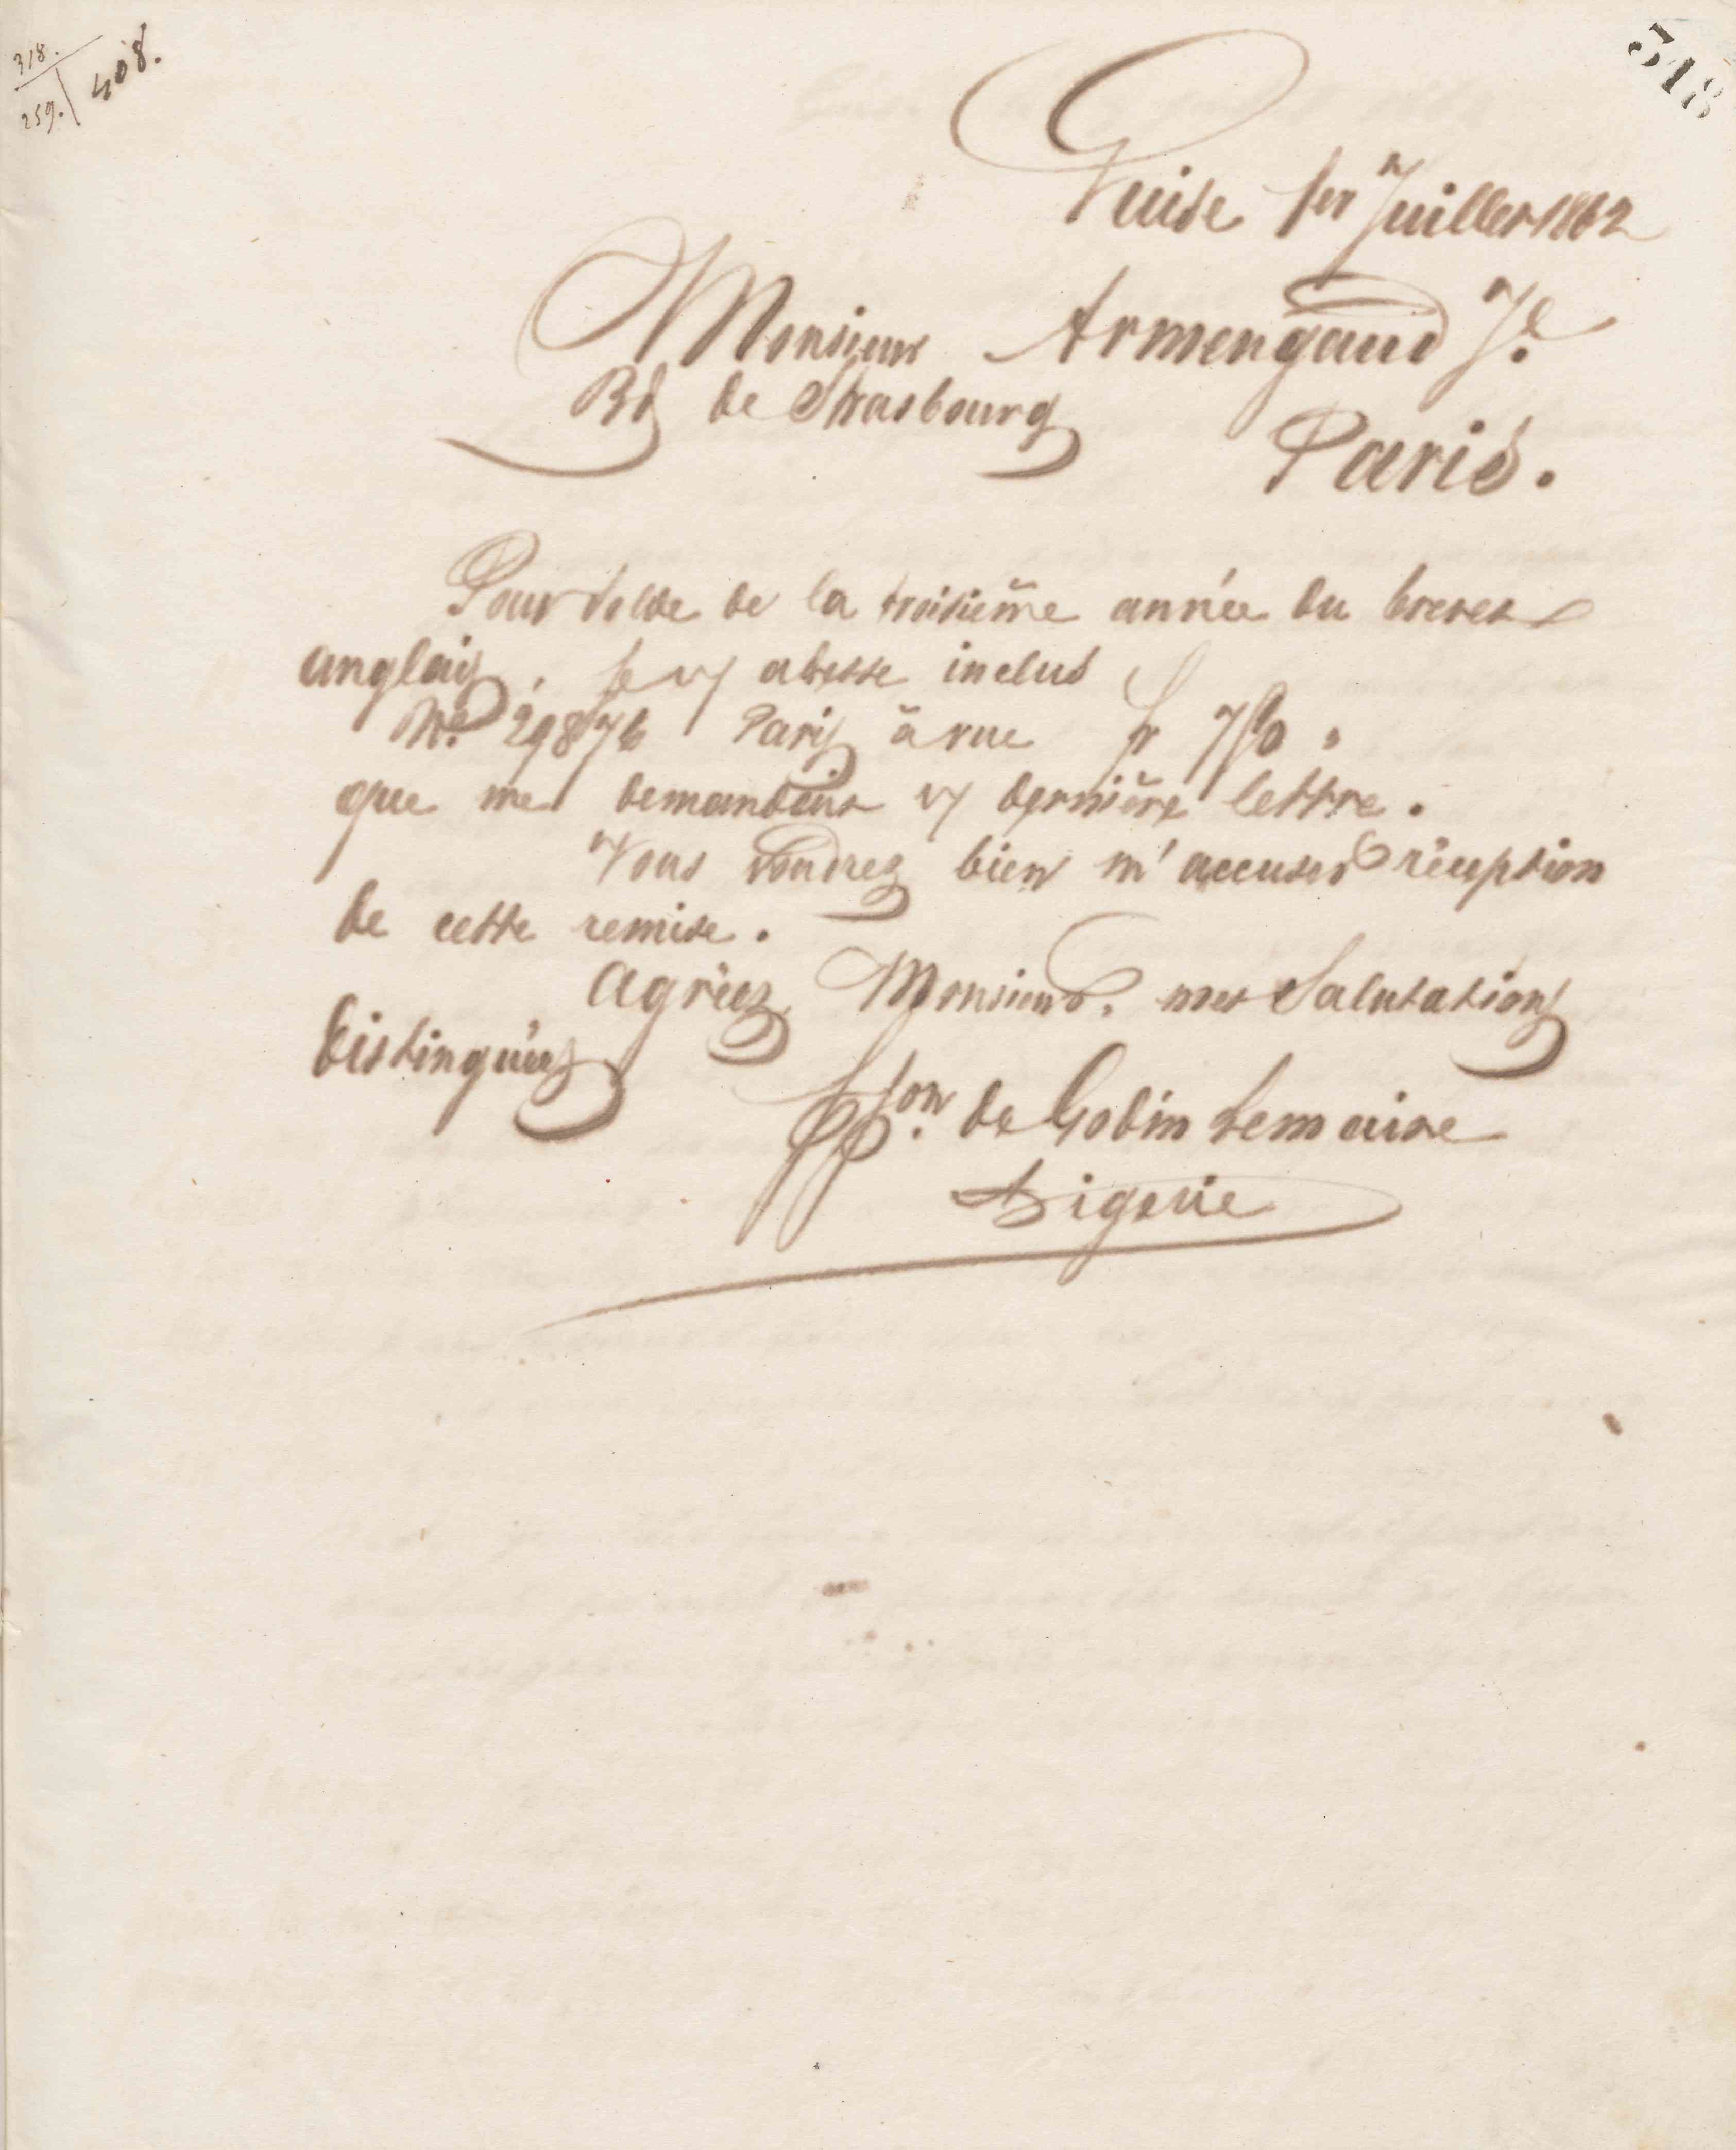 318.
259. 408.
318
Guise 1er Juillet 1862
Monsieur Armengaud Je.
Bd de Strasbourg
Paris.
Pour solde de la troisième année du brevet
anglais, je vs adresse inclus
No. 29876 Paris à vue fr 750 "
que me demandait vs dernière lettre.
Vous voudrez bien m'accuser réception
de cette remise.
Agréez, Monsieur, mes Salutations
distinguées
ppon. de Godin Lemaire